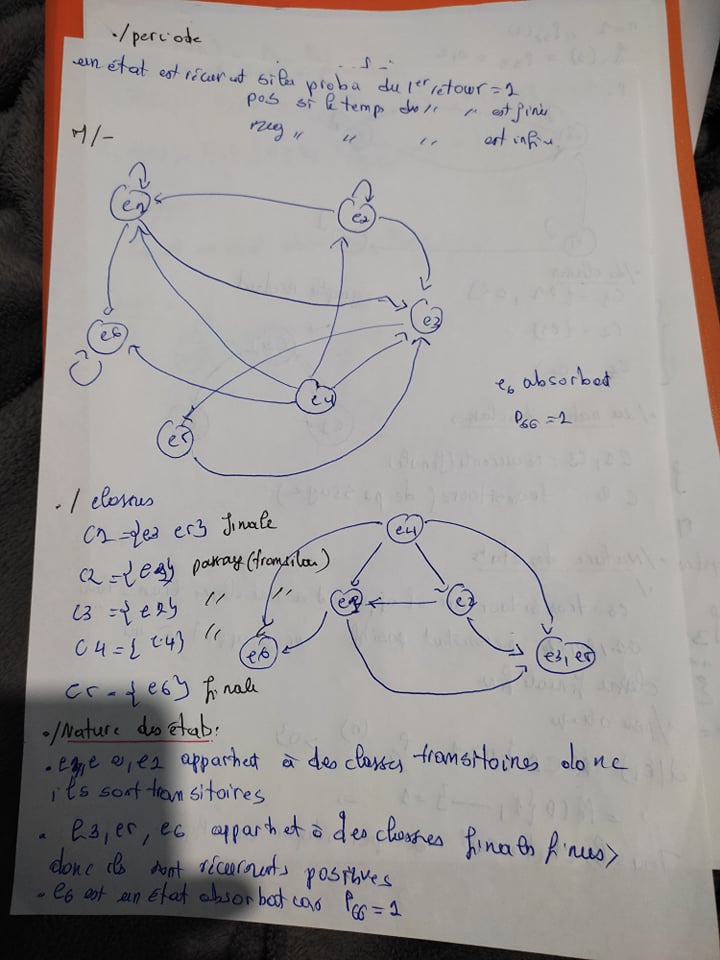 ./ periode
un état est récurent si la proba du 1er retour = 1
pos si le temps du " " est finie
neg " " " est infini
M/-
e1
e2
e3
e6
e4
e5
e6 absorbat
P66 = 1
./ classes
C1 = {e3 e5} finale
C2 = {e1} passage (transitoi)
C3 = {e2} " "
C4 = {e4} "
C5 = {e6} finale
e4
e1
e2
e6
e3, e5
./ Nature des état:
. e4, e2, e1 appartnet à des classes transitoires donc
ils sont transitoires
. e3, e5, e6 appartnet à des classes finals finies
donc ils sont récurents positives
. e6 est un état absorbat car P66 = 1